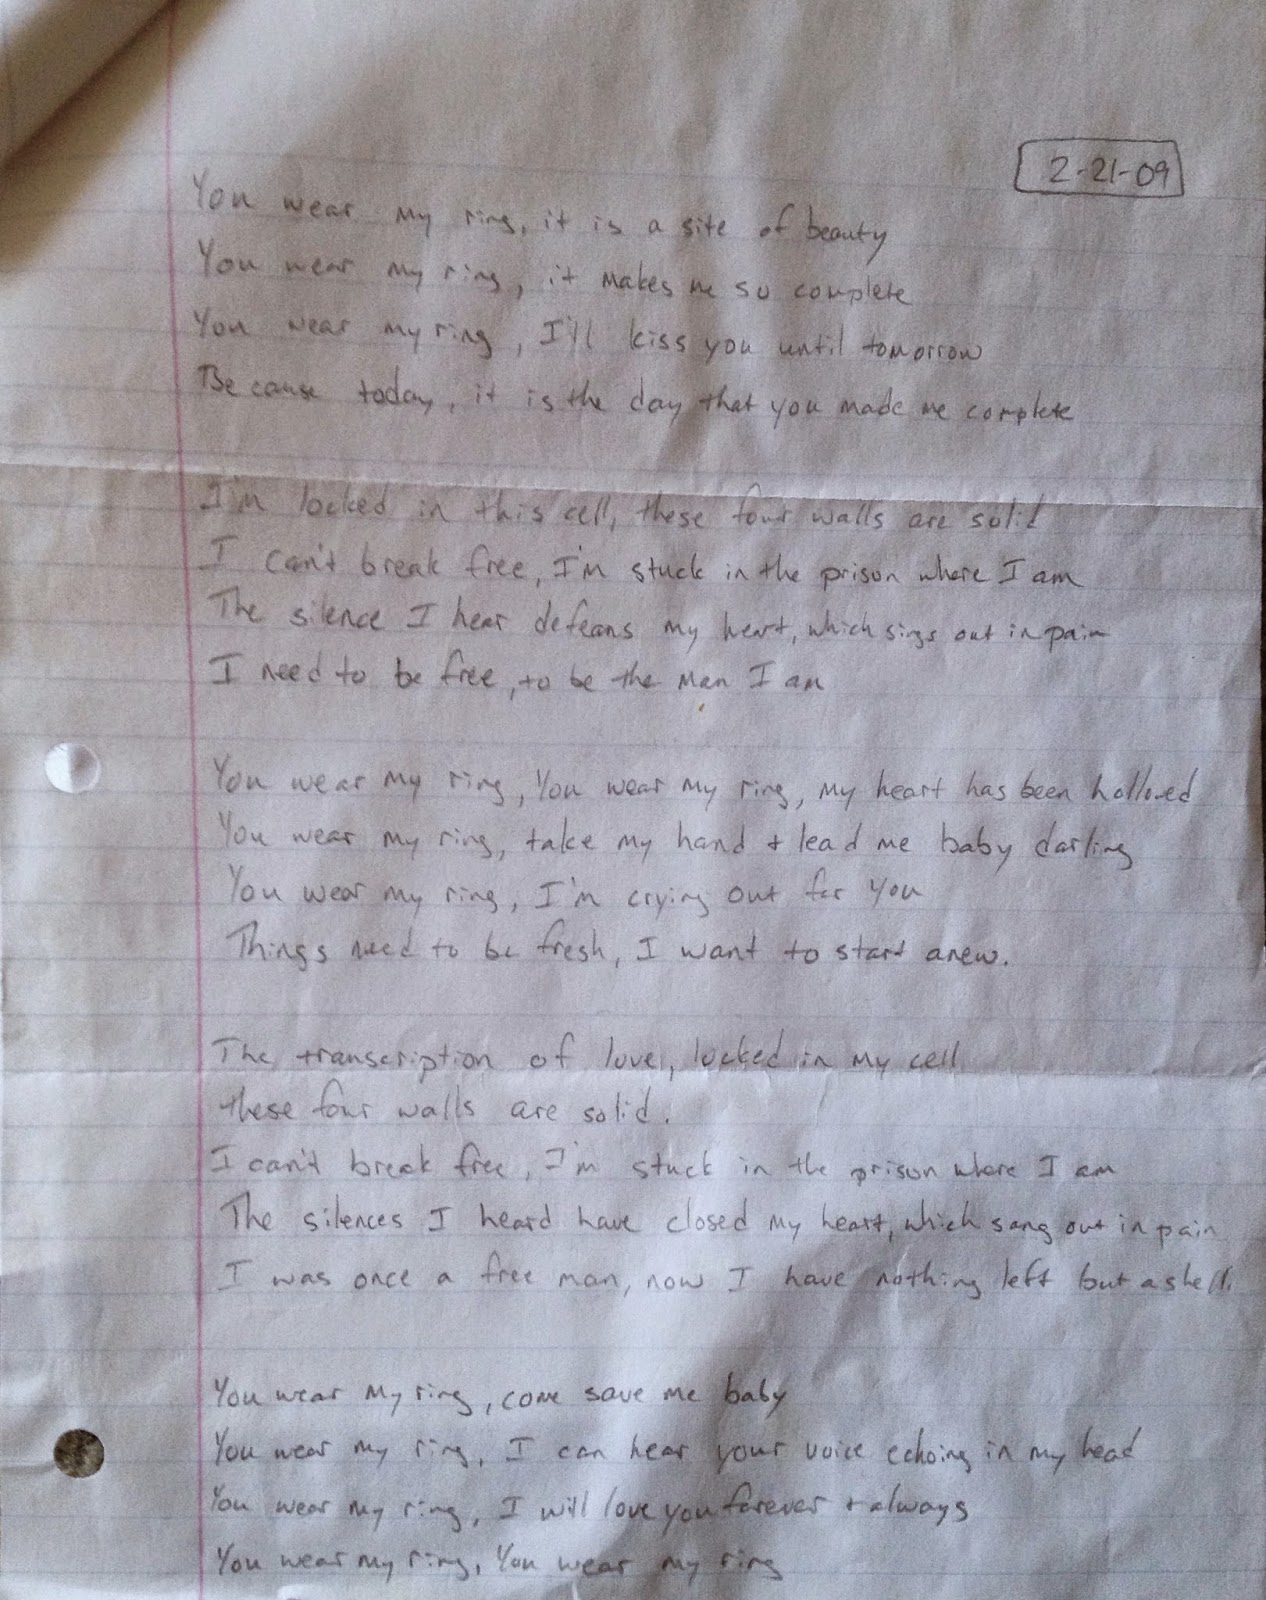 2-21-09
You wear my ring, it is a site of beauty
You wear my ring, it makes me so complete
You wear my ring, I'll kiss you until tomorrow
Because today, it is the day that you made me complete
I'm locked in this cell, these four walls are solid
I can't break free, I'm stuck in the prison where I am
The silence I hear defeans my heart, which sings out in pain
I need to be free, to be the man I am
You wear my ring, You wear my ring, my heart has been hollowed
You wear my ring, take my hand + lead me baby darling
You wear my ring, I'm crying out for you
Things need to be fresh, I want to start anew.
The transcription of love, locked in my cell
these four walls are solid.
I can't break free, I'm stuck in the prison where I am
The silences I heard have closed my heart, which sang out in pain
I was once a free man, now I have nothing left but a shell.
You wear my ring, come save me baby
You wear my ring, I can hear your voice echoing in my head
You wear my ring, I will love you forever + always
You wear my ring, You wear my ring